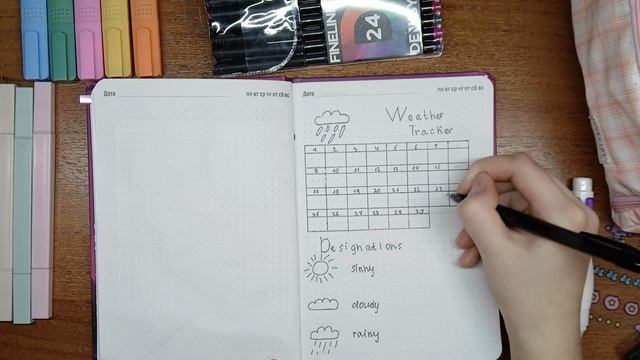 FINELINER
24
Дата
пн вт ср чт пт сб вс
Дата
пн вт ср чт пт сб вс
Weather
Tracker
1 2 3 4 5 6 7
9 10 11 12 13 14 15
17 18 19 20 21 22 23
25 26 27 28 29 30
Designations
sinny
cloudy
rainy